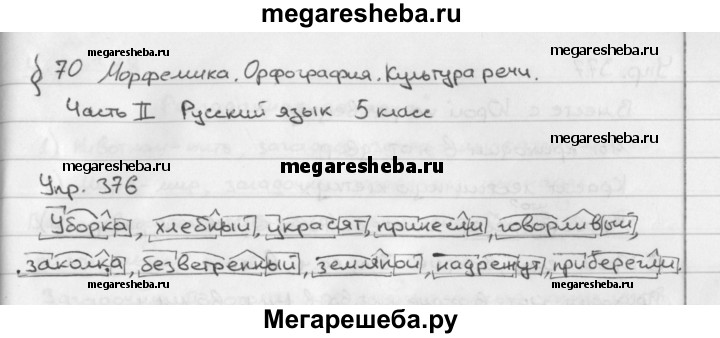 megaresheba.ru
§ 70 Морфемика. Орфография. Культура речи.
megaresheba.ru
megaresheba.ru
Часть II Русский язык 5 класс
megaresheba.ru
megaresheba.ru
megaresheba.ru
Упр. 376
Уборка, хлебный, украсят, принесли, говорливый,
заколка, безветренный, земляной, надрежут, приберегли.
megaresheba.ru
megaresheba.ru
Мегарешеба.ру